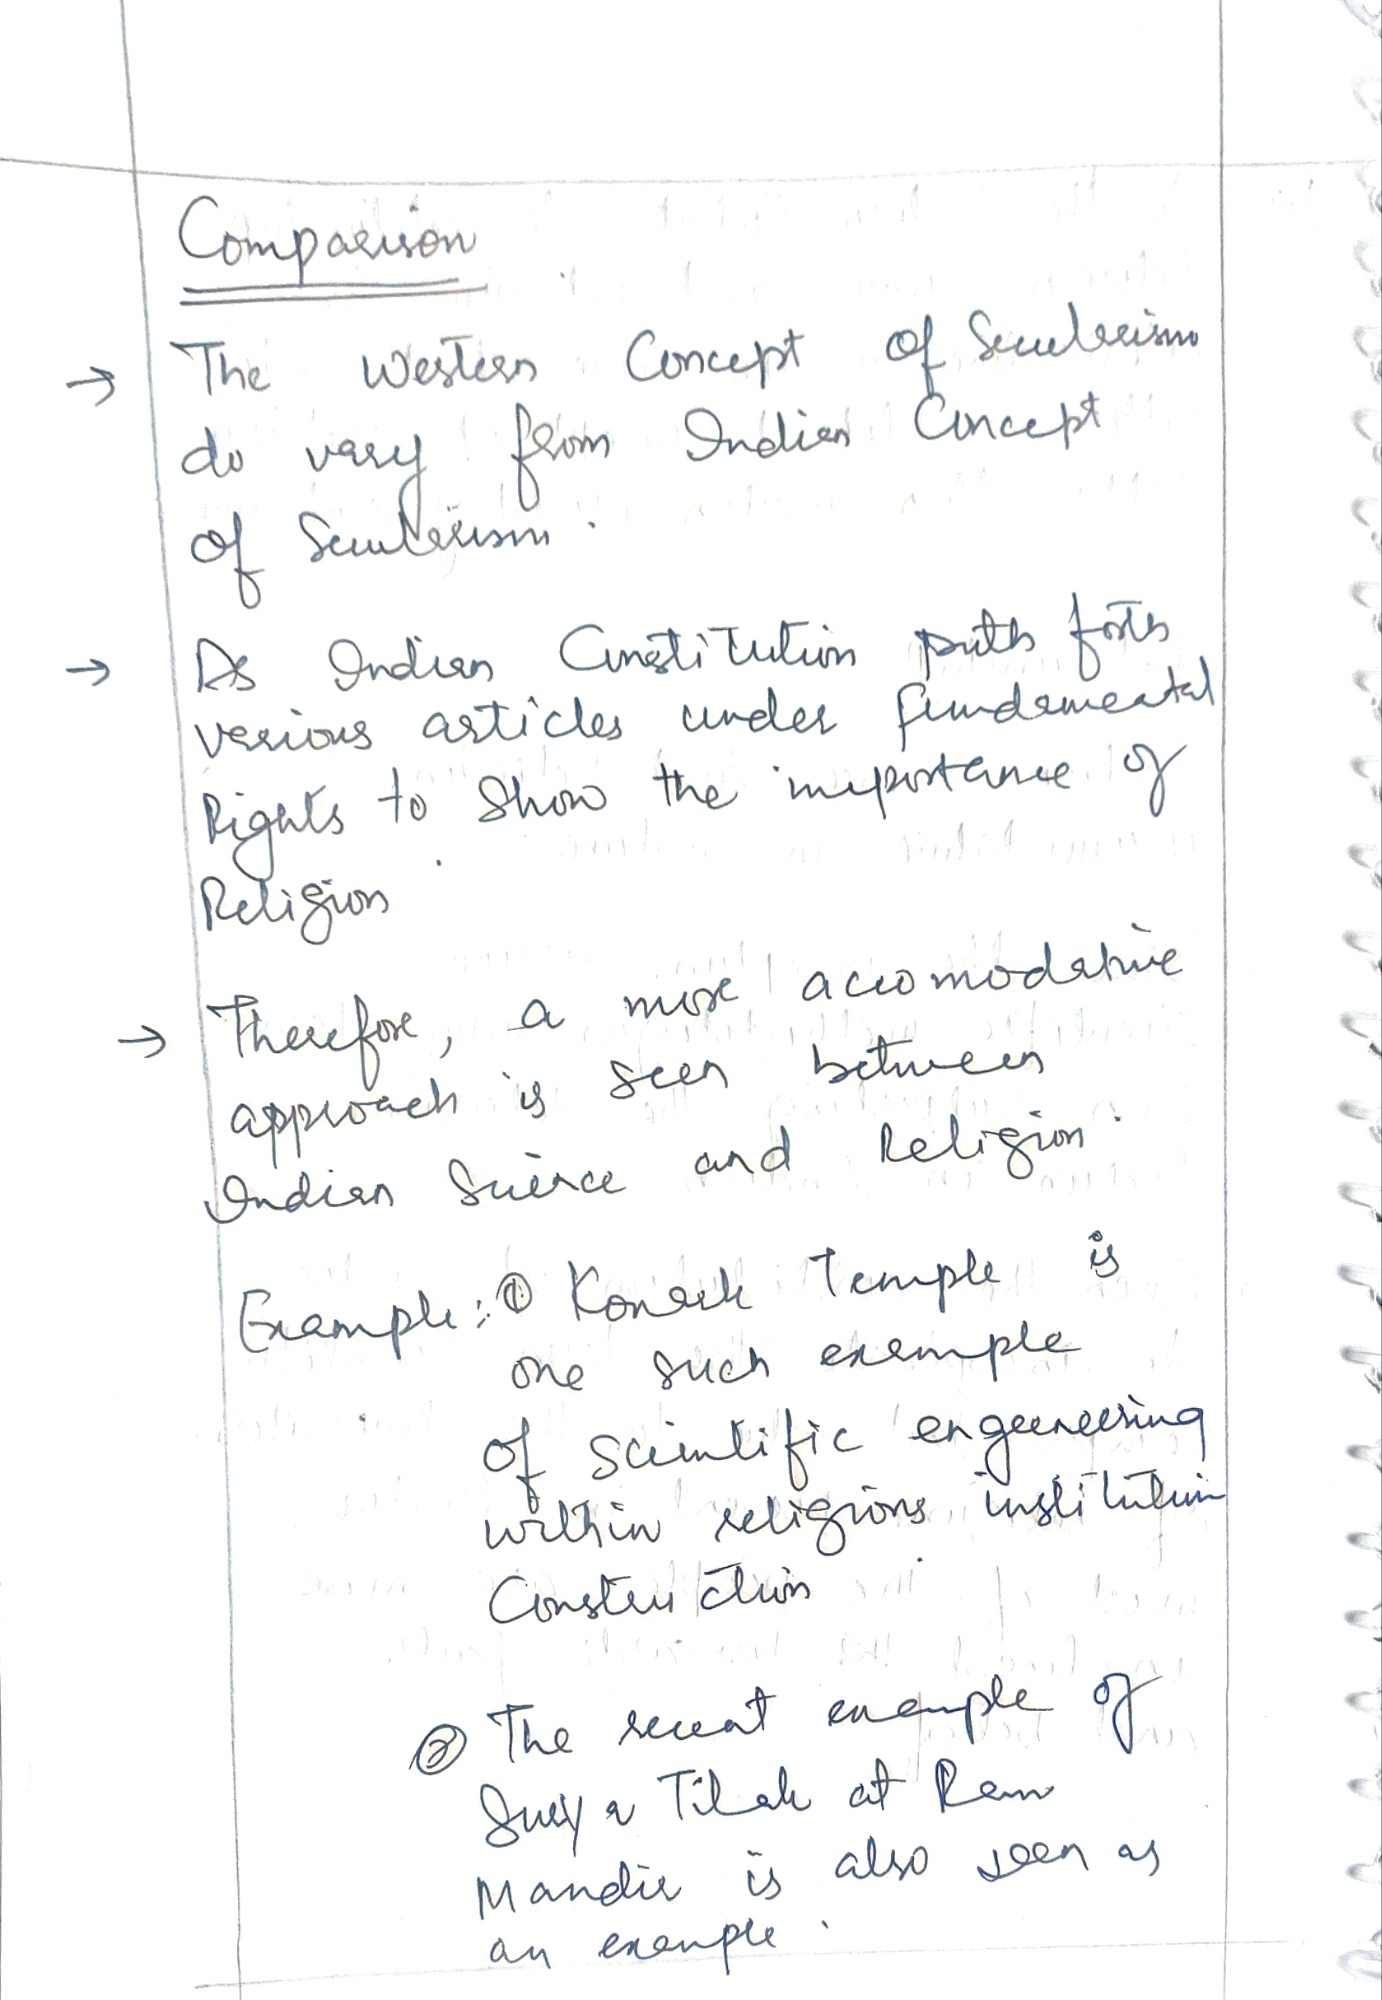 Comparison
→ The Western Concept of Secularism
do vary from Indian Concept
of Secularism.
→ As Indian Constitution puts forth
various articles under fundamental
Rights to show the importance of
Religion.
→ Therefore, a more accomodative
approach is seen between
Indian Science and Religion.
Example: ① Konark Temple is
one such example
of scientific engeeneering
within religious institution
Construction.
② The recent example of
Surya Tilak at Ram
Mandir is also seen as
an example.